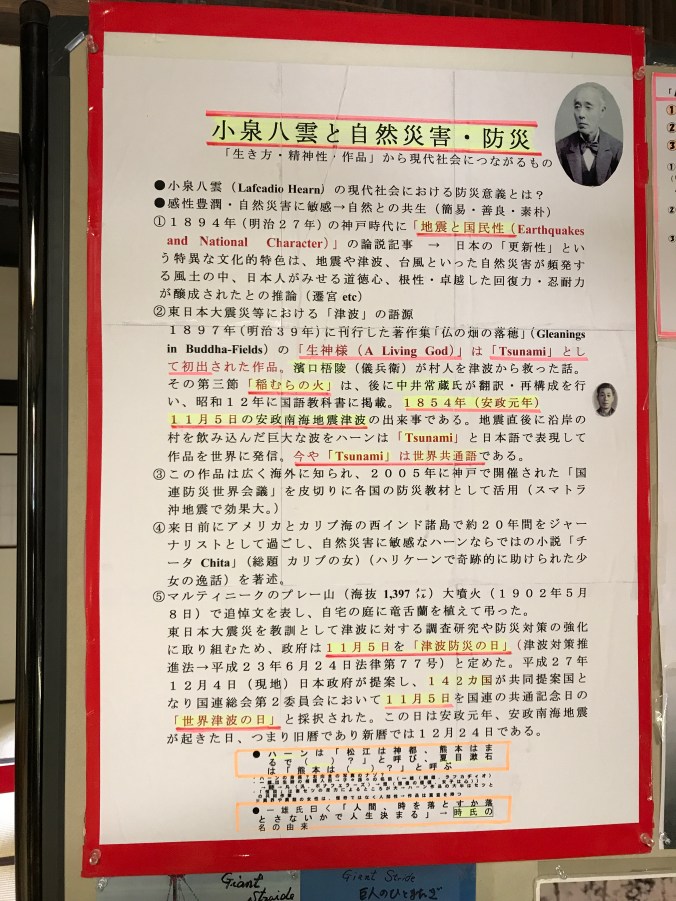 小泉八雲と自然災害・防災
「生き方・精神性・作品」から現代社会につながるもの
●小泉八雲（Lafcadio Hearn）の現代社会における防災意義とは？
●感性豊潤・自然災害に敏感→自然との共生（簡易・善良・素朴）
①１８９４年（明治２７年）の神戸時代に「地震と国民性（Earthquakes
and National Character）」の論説記事 → 日本の「更新性」とい
う特異な文化的特色は、地震や津波、台風といった自然災害が頻発す
る風土の中、日本人がみせる道徳心、根性・卓越した回復力・忍耐力
が醸成されたとの推論（遷宮 etc）
②東日本大震災等における「津波」の語源
１８９７年（明治３９年）に刊行した著作集「仏の畑の落穂」（Gleanings
in Buddha-Fields）の「生神様（A Living God）」は「Tsunami」とし
て初出された作品。濱口梧陵（儀兵衛）が村人を津波から救った話。
その第三節「稲むらの火」は、後に中井常蔵氏が翻訳・再構成を行
い、昭和１２年に国語教科書に掲載。１８５４年（安政元年）
１１月５日の安政南海地震津波の出来事である。地震直後に沿岸の
村を飲み込んだ巨大な波をハーンは「Tsunami」と日本語で表現して
作品を世界に発信。今や「Tsunami」は世界共通語である。
③この作品は広く海外に知られ、２００５年に神戸で開催された「国
連防災世界会議」を皮切りに各国の防災教材として活用（スマトラ
沖地震で効果大。）
④来日前にアメリカとカリブ海の西インド諸島で約２０年間をジャー
ナリストとして過ごし、自然災害に敏感なハーンならではの小説「チ
ータ Chita」（総題 カリブの女）（ハリケーンで奇跡的に助けられた少
女の逸話）を著述。
⑤マルティニークのプレー山（海抜 1,397 ㍍）大噴火（１９０２年５月
８日）で追悼文を表し、自宅の庭に竜舌蘭を植えて弔った。
東日本大震災を教訓として津波に対する調査研究や防災対策の強化
に取り組むため、政府は１１月５日を「津波防災の日」（津波対策推
進法→平成２３年６月２４日法律第７７号）と定めた。平成２７年
１２月４日（現地）日本政府が提案し、１４２カ国が共同提案国と
なり国連総会第２委員会において１１月５日を国連の共通記念日の
「世界津波の日」と採択された。この日は安政元年、安政南海地震
が起きた日、つまり旧暦であり新暦では１２月２４日である。
●ハーンは「松江は神都、熊本はま
るで（　　）？」と呼び、夏目漱石
は「熊本は（　　）？」と呼ぶ
●一雄氏曰く「人間、時を落とすか落
とさないかで人生決まる」→時氏の
名の由来
Giant
Straide
Giant Stride
巨人のひとまたぎ